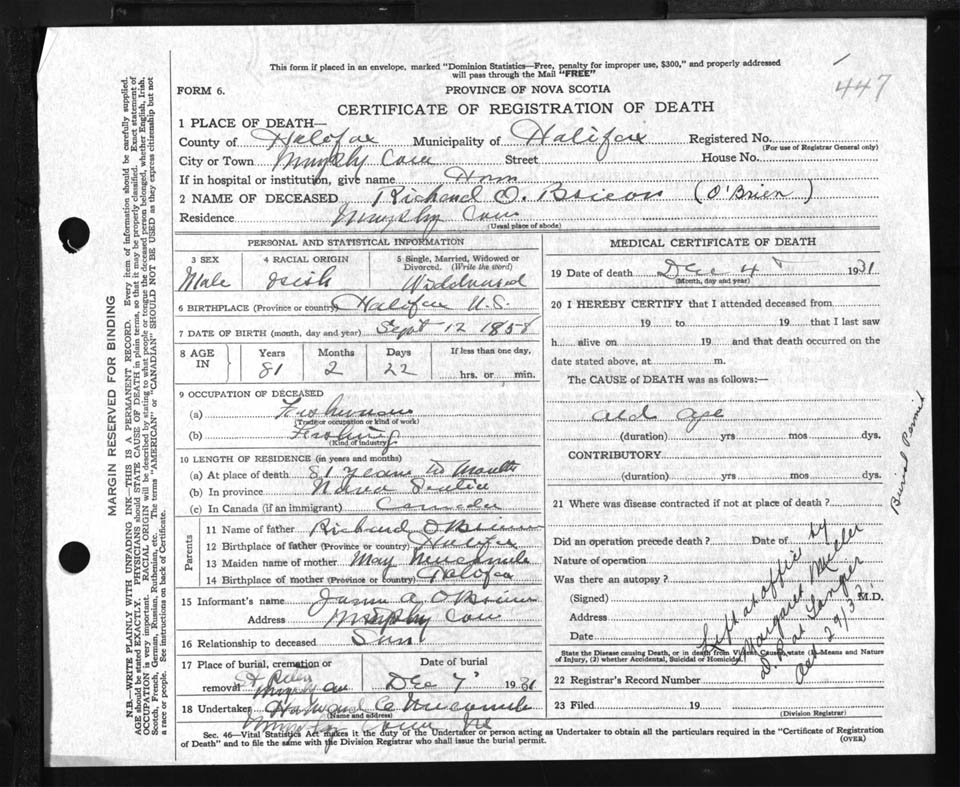 This form if placed in an envelope, marked "Dominion Statistics—Free, penalty for improper use, $300," and properly addressed
will pass through the Mail "FREE"
447
FORM 6.
PROVINCE OF NOVA SCOTIA
CERTIFICATE OF REGISTRATION OF DEATH
1 PLACE OF DEATH—
County of Halofax Municipality of Halifax Registered No.
(For use of Registrar General only)
City or Town Murphy Cove Street House No.
If in hospital or institution, give name Hom
2 NAME OF DECEASED Richard O. Brieon (O'Brien)
Residence Murphy Cove
(Usual place of abode)
PERSONAL AND STATISTICAL INFORMATION
3 SEX
Male
4 RACIAL ORIGIN
Irish
5 Single, Married, Widowed or
Divorced. (Write the word)
Widdowed
6 BIRTHPLACE (Province or country) Halofax
7 DATE OF BIRTH (month, day and year) Sept 12 1858
8 AGE IN
Years Months Days If less than one day,
81 2 22 hrs. or min.
9 OCCUPATION OF DECEASED
(a)
(Trade or occupation or kind of work)
(b) Fishing
(Kind of industry)
10 LENGTH OF RESIDENCE (in years and months)
(a) At place of death 81 years
(b) In province Nova Scotia
(c) In Canada (if an immigrant) Canada
Parents
11 Name of father Richard O Brien
12 Birthplace of father (Province or country) Halofax
13 Maiden name of mother May
14 Birthplace of mother (Province or country) Halofax
15 Informant's name A. O Brien
Address Murphy Cove
16 Relationship to deceased Son
17 Place of burial, cremation or
removal Murphy Cove
Date of burial
Dec 7 1931
18 Undertaker
(Name and address)
Murphy Cove
MEDICAL CERTIFICATE OF DEATH
19 Date of death Dec 4 1931
(Month, day and year)
20 I HEREBY CERTIFY that I attended deceased from
19 to 19 that I last saw
h alive on 19 and that death occurred on the
date stated above, at m.
The CAUSE of DEATH was as follows:—
old age
(duration) yrs mos dys.
CONTRIBUTORY
(duration) yrs mos dys.
21 Where was disease contracted if not at place of death?
Did an operation precede death? Date of
Nature of operation
Was there an autopsy?
(Signed) M.D.
Address
Date
Left at office by
Margaret Miller
Burial Permit
State the Disease causing Death, or in death from Violent Causes, state (1) Means and Nature
of Injury, (2) whether Accidental, Suicidal or Homicidal.
22 Registrar's Record Number
23 Filed 19
(Division Registrar)
Sec. 46—Vital Statistics Act makes it the duty of the Undertaker or person acting as Undertaker to obtain all the particulars required in the "Certificate of Registration
of Death" and to file the same with the Division Registrar who shall issue the burial permit.
(OVER)
MARGIN RESERVED FOR BINDING
N.B.—WRITE PLAINLY WITH UNFADING INK—THIS IS A PERMANENT RECORD. Every item of information should be carefully supplied.
AGE should be stated EXACTLY. PHYSICIANS should STATE CAUSE OF DEATH in plain terms, so that it may be properly classified. Exact statement of
OCCUPATION is very important. RACIAL ORIGIN will be described by stating to what people or tongue the deceased person belonged, whether English, Irish,
Scotch, French, German, Russian, Ruthenian, etc. The terms "AMERICAN" or "CANADIAN" SHOULD NOT BE USED as they express citizenship but not
a race or people. See instructions on back of Certificate.